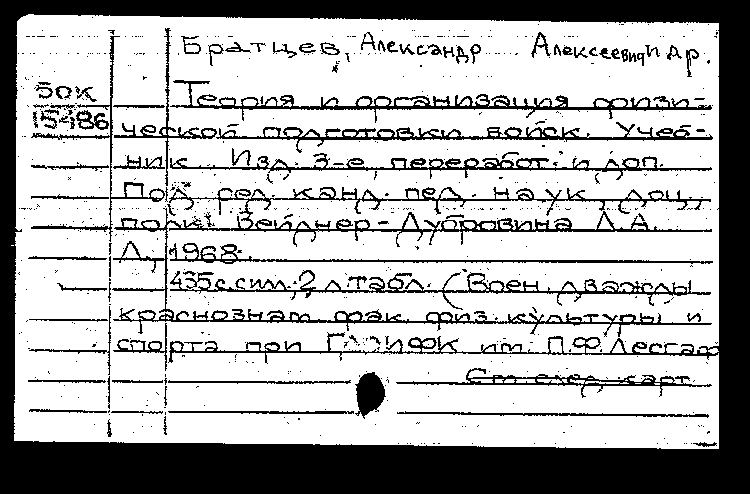 Братцев, Александр Алексеевич и др.
бок
15486
Теория и организация физи-
ческой подготовки войск. Учеб-
ник. Изд. 3-е, переработ. и доп.
Под ред. канд. пед. наук, доц.,
полк. Вейднер-Дубровина Л.А.
Л., 1968.
435 с. с илл.; 2 л. табл. (Воен. дважды
краснознам. фак. физ. культуры и
спорта при ГДОИФК им. П.Ф. Лесгаф
См. след. карт.